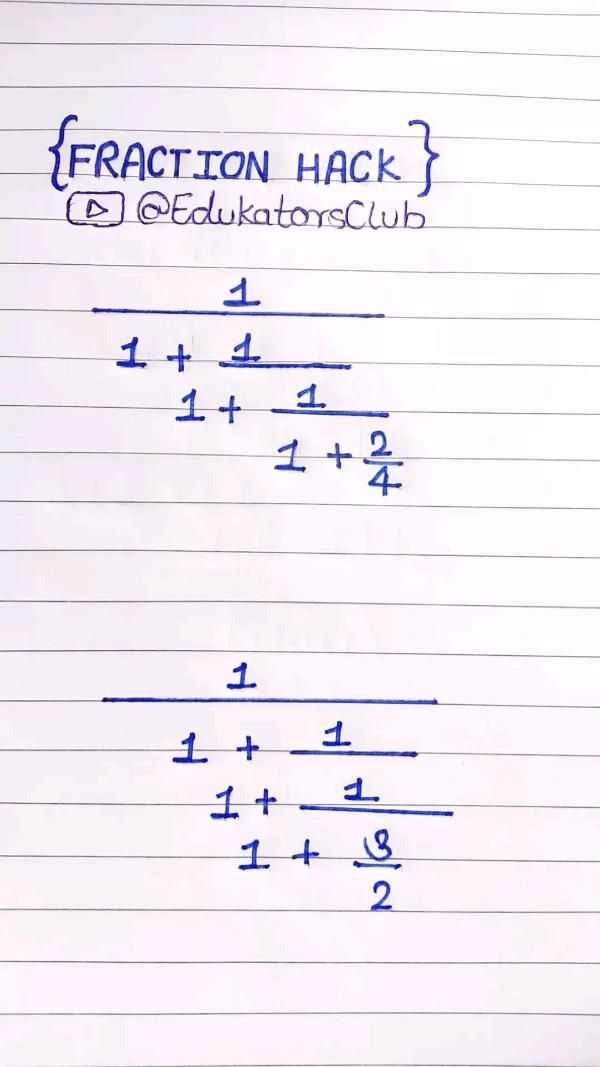 {FRACTION HACK}
@EdukatorsClub
1
1 + 1
1 + 1
1 + 2
4
1
1 + 1
1 + 1
1 + 3
2